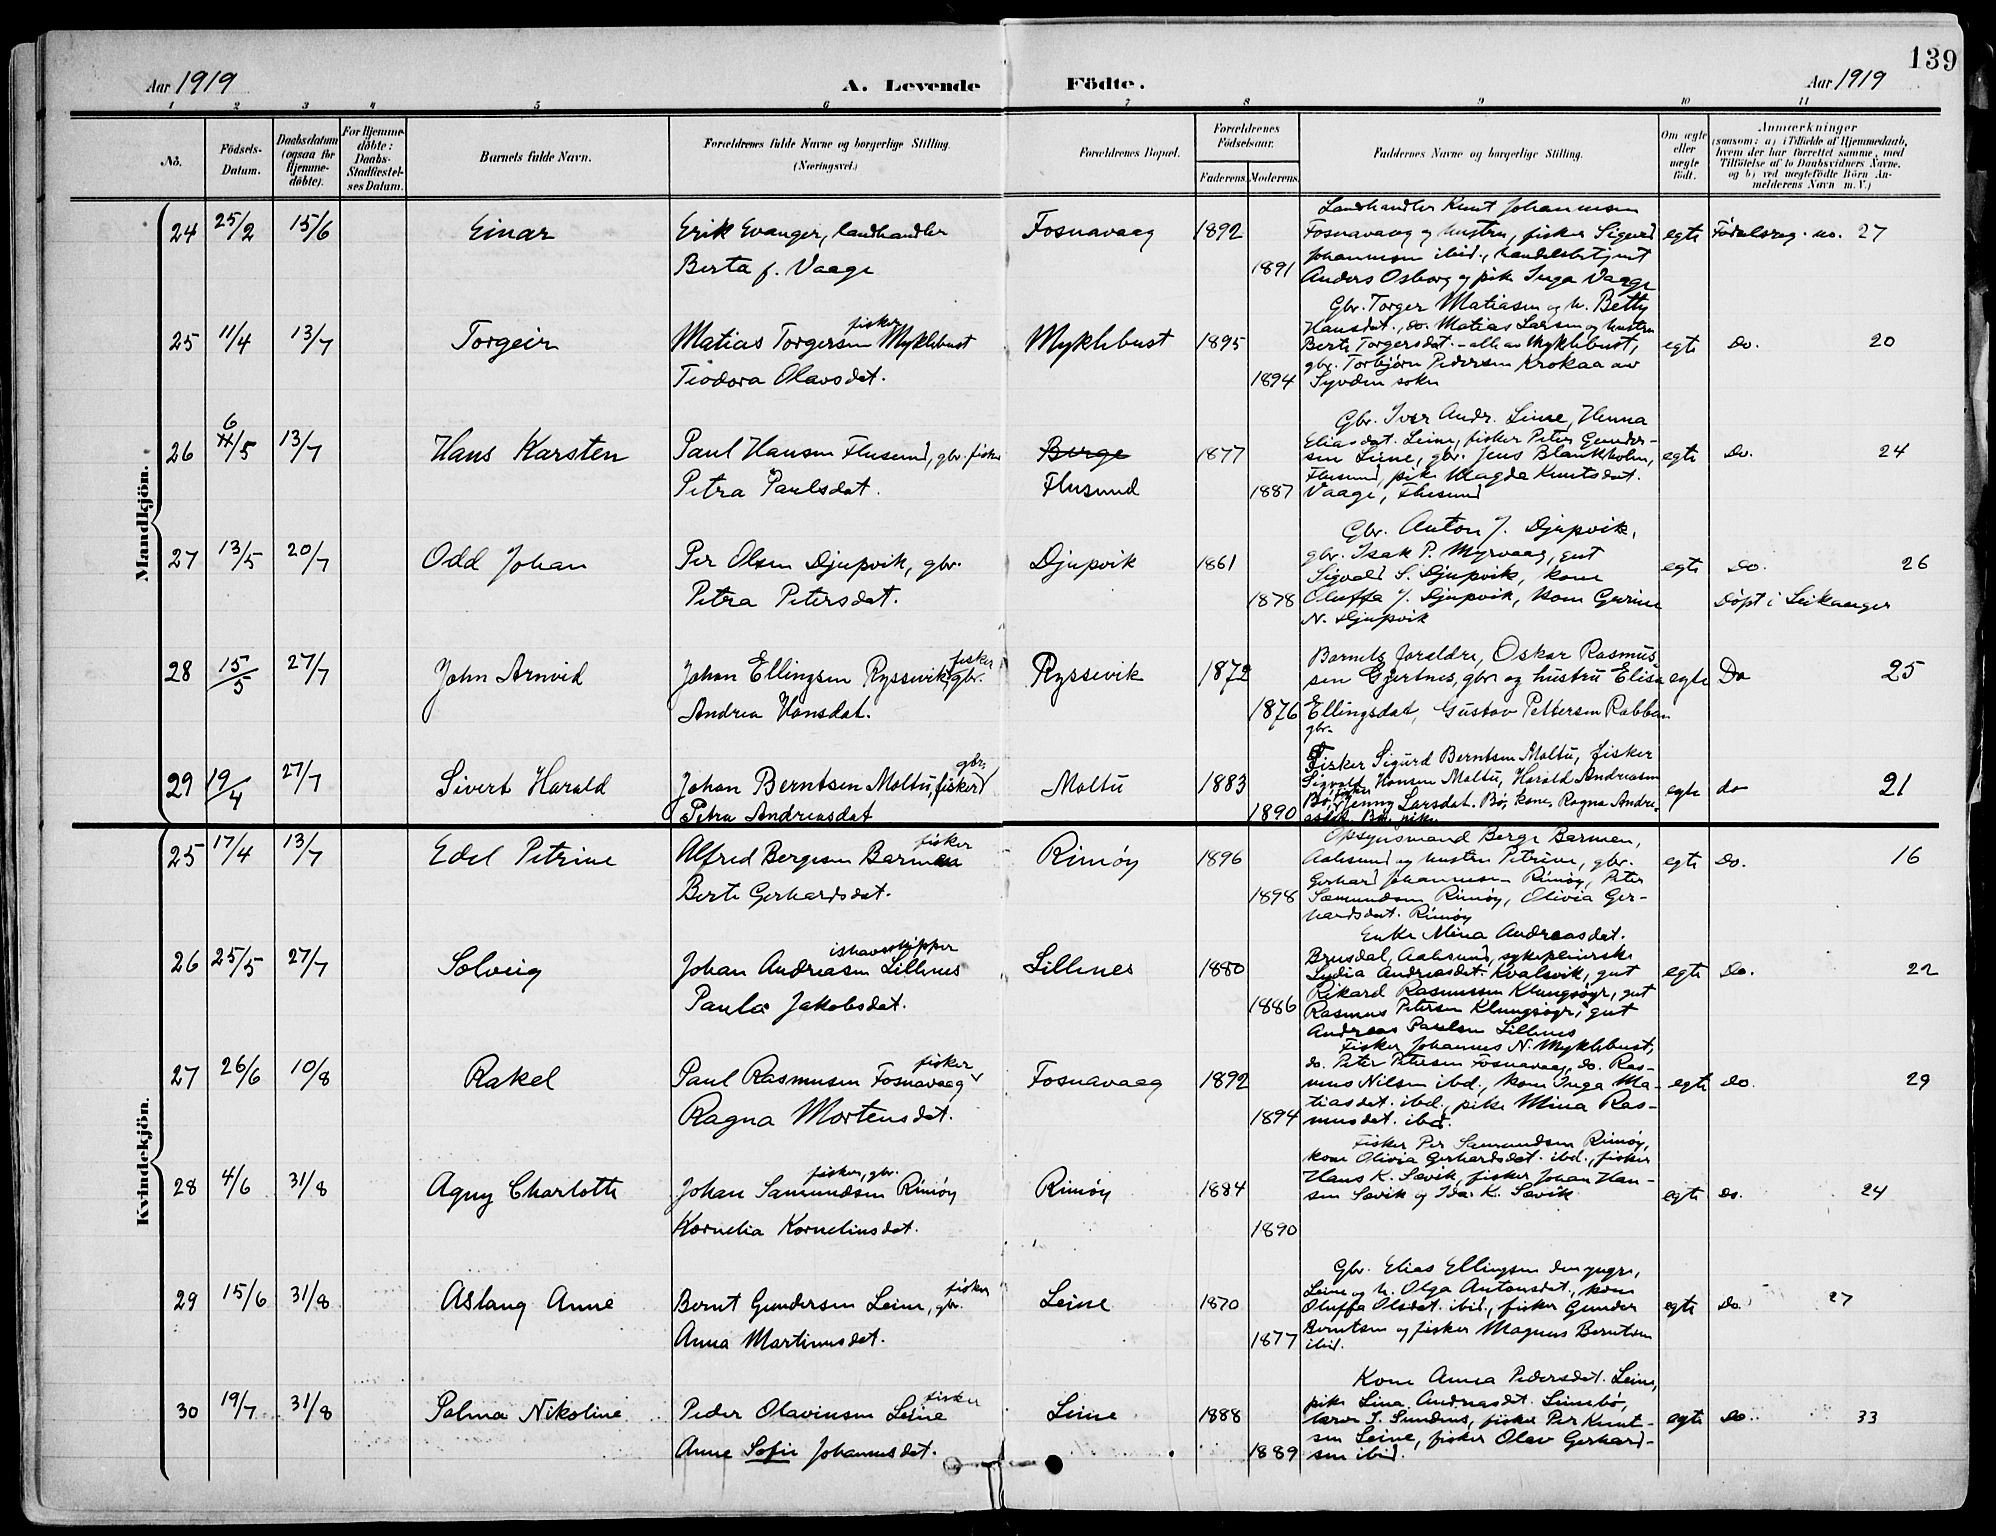 139
Aar 1919 A. Levende Födte. Aar 1919
1 2 3 4 5 6 7 8 9 10 11
No.
Födsels-
Datum.
Daabsdatum
(ogsaa for
Hjemme-
døbte).
For Hjemme-
døbte:
Daabs-
Stadfæstel-
ses Datum.
Barnets fulde Navn.
Forældrenes fulde Navne og borgerlige Stilling.
(Næringsvei.)
Forældrenes Bopæl.
Forældrenes
Födselsaar.
Faderens. Moderens.
Faddernes Navne og borgerlige Stilling.
Om ægte
eller
uægte
født.
Anmærkninger
(saasom: a) i Tilfælde af Hjemmedaab,
hvem der har forrettet samme, med
Tilføielse af to Daabsvidners Navne,
og b) ved uægtefödte Börn An-
melderens Navn m. V.)
Mandkjön.
24 25/2 15/6 Einar
Erik Evanger, landhandler
Berta f. Vaage
Fosnavaag 1892
1891
Landhandler Knut Johannessen
Fosnavaag og hustru, fisker Sigurd
Johannessen ibid., handelsbetjent
Anders Osborg og pike Inga Vaage
egte Fødselsreg. no. 27
25 11/4 13/7 Torgeir
fisker
Matias Torgersen Myklebust
Tiodora Olavsdat.
Myklebust 1895
1894
Gbr. Torger Matiasen og h. Betty
Hansdat., do. Matias Larsen og hustru
Berte Torgersdat. - alle av Myklebust,
gbr. Torbjørn Pedersen Krokaa av
Syvden sokn
egte Do. 20
26 6/5 13/7 Hans Karsten
Paul Hansen Flusund, gbr. fisker
Petra Paulsdat.
Berge
Flusund
1877
1887
Gbr. Iver Andr. Leine, Henna
Eliasdat. Leine, fisker Peter Gunder-
sen Leine, gbr. Jens Blankholm,
Flusund, pike Magda Knutsdat.
Vaage, Flusund
egte Do. 24
27 13/5 20/7 Odd Johan
Per Olsen Djupvik, gbr.
Petra Petersdat.
Djupvik 1861
1878
Gbr. Anton J. Djupvik,
gbr. Isak P. Myrvaag, gut
Sigvald S. Djupvik, kone
Oluffa J. Djupvik, kone Gurine
N. Djupvik
egte Do. 26
Døpt i Leikanger
28 15/5 27/7 John Arnvid
fisker
Johan Ellingsen Ryssevik, gbr.
Andrea Hansdat.
Ryssevik 1872
1876
Barnets foraldre, Oskar Rasmus
sen Gjertnes, gbr og hustru Elisa
Ellingsdat, Gustav Pettersen Rabben
gbr.
egte Do 25
29 19/4 27/7 Sivert Harald
gbr.
Johan Berntsen Moltu, fisker
Petra Andreasdat
Moltu 1883
1890
Fisker Sigurd Berntsen Moltu, fisker
Sigvald Hansen Moltu, Harald Andreasen
Bø, fisker, Jenny Larsdat. Bø, kone, Ragna Andre-
asdat Bø, pike
egte do 21
Kvindekjön.
25 17/4 13/7 Edel Petrine
fisker
Alfred Bergesen Barmen
Berte Gerhardsdat.
Rimöy 1896
1898
Opsynsmand Berge Barmen,
Aalesund og hustru Petrine, gbr.
Gerhard Johannesen Rimöy, Peter
Sæmundsen Rimöy, Olivia Ger-
hardsdat. Rimöy
egte Do. 16
26 25/5 27/7 Solveig
ishavsskipper
Johan Andreasen Lillenes
Paula Jakobsdat.
Lillenes 1880
1886
Enke Mina Andreasdat.
Brusdal, Aalesund, sykepleierske
Lydia Andreasdat. Kvalsvik, gut
Rikard Rasmussen Klungsøyr, gut
Rasmus Petersen Klungsøyr, gut
Andreas Paulsen Lillenes
egte Do. 22
27 26/6 10/8 Rakel
fisker
Paul Rasmussen Fosnavaag
Ragna Mortensdat.
Fosnavaag 1892
1894
Fisker Johannes N. Myklebust,
do. Peter Petersen Fosnavaag, do. Ras-
mus Nilsen ibd., kone Inga Ma-
tiasdat. ibd., pike Mina Ras-
musdat. ibd.
egte do. 29
28 4/6 31/8 Agny Charlotte
fisker, gbr.
Johan Samundsen Rimöy
Kornelia Korneliusdat.
Rimöy 1884
1890
Fisker Per Samundsen Rimöy,
kone Olivia Gerhardsdat. ibd., fisker
Hans K. Sævik, fisker Johan Han-
sen Sævik og Ida K. Sævik
egte do. 24
29 15/6 31/8 Aslaug Anne
fisker
Bernt Gundersen Leine, gbr.
Anna Martinusdat.
Leine 1870
1877
Gbr. Elias Ellingsen den yngre,
Leine og h. Olga Antonsdat., kone
Oluffa Olsdat. ibid., fisker Gunder
Berntsen og fisker Magnus Berntsen
ibid.
egte Do. 27
30 19/7 31/8 Palma Nikoline
fisker
Peder Olavinsen Leine
Anne Sofie Johannesdat.
Leine 1888
1889
Kone Anna Pedersdat. Leine,
pike Lina Andreasdat.
lærer S. Sundnes, fisker Per Knut-
sen Leine, fisker Olav Gerhard-
sen ibid.
egte do. 33